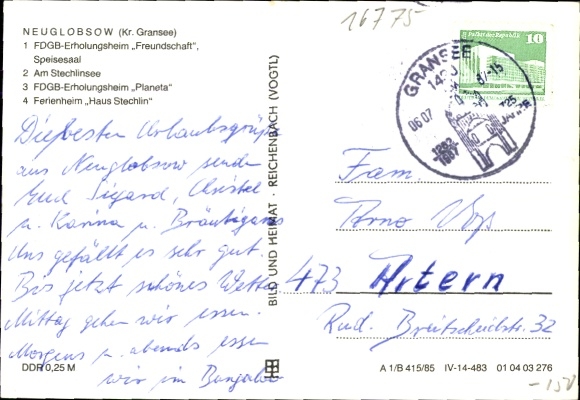 16775
NEUGLOBSOW (Kr. Gransee)
1 FDGB-Erholungsheim „Freundschaft",
Speisesaal
2 Am Stechlinsee
3 FDGB-Erholungsheim „Planeta"
4 Ferienheim „Haus Stechlin"
Die besten Urlaubsgrüße
aus Neuglobsow senden
Euch Sigard, Christel
u. Karina u. Bräutigam
Uns gefällt es sehr gut.
Bis jetzt schönes Wetter
Mittag gehen wir essen.
Morgens u. abends essen
wir im Bungalow
DDR 0,25 M
BILD UND HEIMAT · REICHENBACH (VOGTL)
Palast der Republik
10
GRANSEE
0607
Fam.
Arno
473 Artern
Rud. Breitscheidstr. 32
A 1/B 415/85 IV-14-483 01 04 03 276
-150